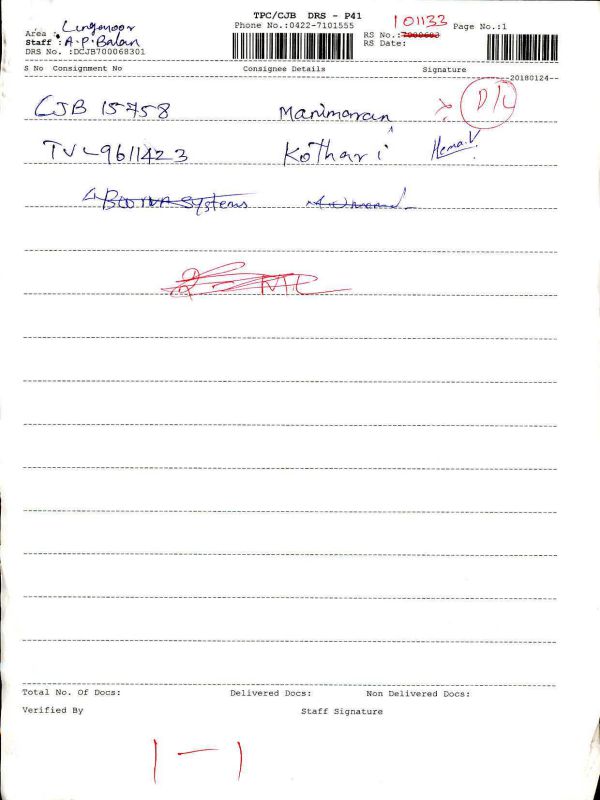 TPC/CJB DRS - P41
Area : Linganoor
Phone No.:0422-7101555
101133
Page No.:1
Staff : A.P. Balan
RS No.:7000683
DRS No. :DCJB700068301
RS Date:
S No Consignment No Consignee Details Signature
--20180124--
CJB 15758 Manimaran D/L
TVL 9611423 Kothari Hema.V.
Systems
NIL
Total No. Of Docs: Delivered Docs: Non Delivered Docs:
Verified By Staff Signature
1-1